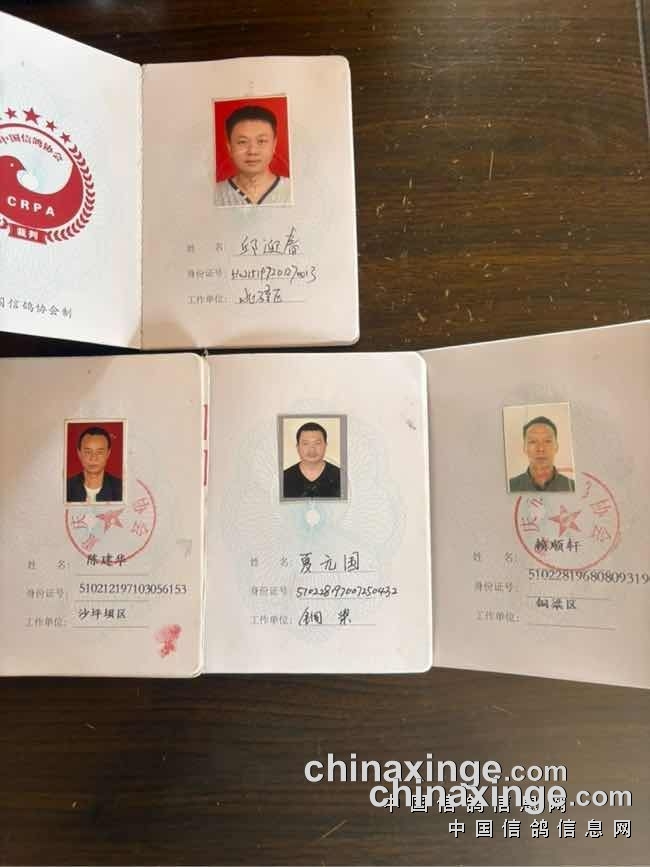 中国信鸽协会
CRPA
裁判
国信鸽协会制
姓 名: 邱迎春
身份证号:
工作单位:
姓 名: 陈建华
身份证号: 510212197103056153
工作单位: 沙坪坝区
姓 名: 夏元国
身份证号: 510228197007250432
工作单位: 铜梁
姓 名: 赖顺轩
身份证号: 51022819680809319
工作单位: 铜梁区
chinaxinge.com
chinaxinge.com
中国信鸽信息网
中国信鸽信息网